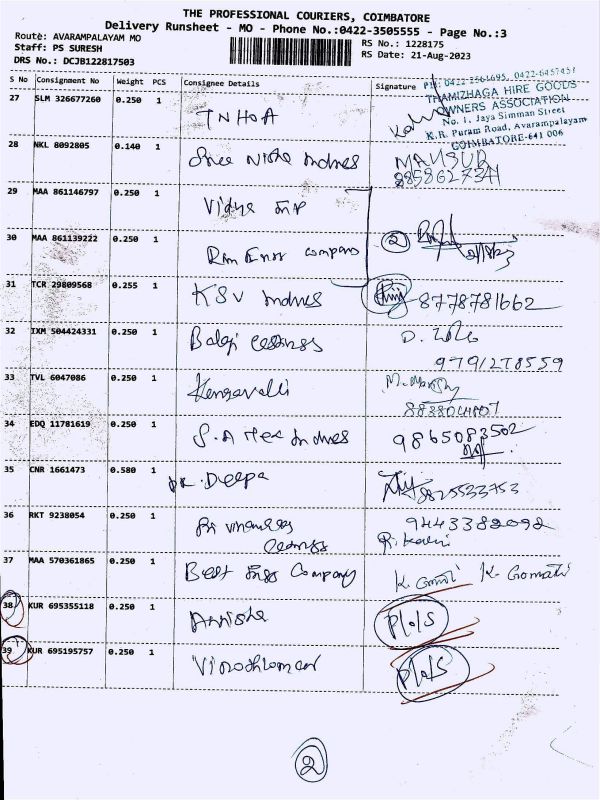 THE PROFESSIONAL COURIERS, COIMBATORE
Delivery Runsheet - MO - Phone No.:0422-3505555 - Page No.:3
Route: AVARAMPALAYAM MO
Staff: PS SURESH
RS No.: 1228175
DRS No.: DCJB122817503
RS Date: 21-Aug-2023
S No Consignment No Weight PCS Consignee Details Signature
PH: 0422-2561695, 0422-6457457
THAMIZHAGA HIRE GOODS
OWNERS ASSOCIATION
No. 1, Jaya Simman Street
K.R. Puram Road, Avarampalayam
COIMBATORE-641 006
27 SLM 326677260 0.250 1 TNHOA
28 NKL 8092805 0.140 1 Sree Nisha Indnes MANSUR
29 MAA 861146797 0.250 1 Vidya
30 MAA 861139222 0.250 1 Rm Engg company 2
31 TCR 29809568 0.255 1 KSV Indnes 8778781662
32 IXM 504424331 0.250 1 Balaji
9791278559
33 TVL 6047086 0.250 1
34 EDQ 11781619 0.250 1 S.A Tex Indnes 9865083502
35 CNR 1661473 0.580 1 DR. Deepa 9825533753
36 RKT 9238054 0.250 1 9443382092
37 MAA 570361865 0.250 1 Best Engg Company K. Gomathi
38 KUR 695355118 0.250 1 Anisha P/o/s
39 KUR 695195757 0.250 1 Vinothkumar P/o/s
2